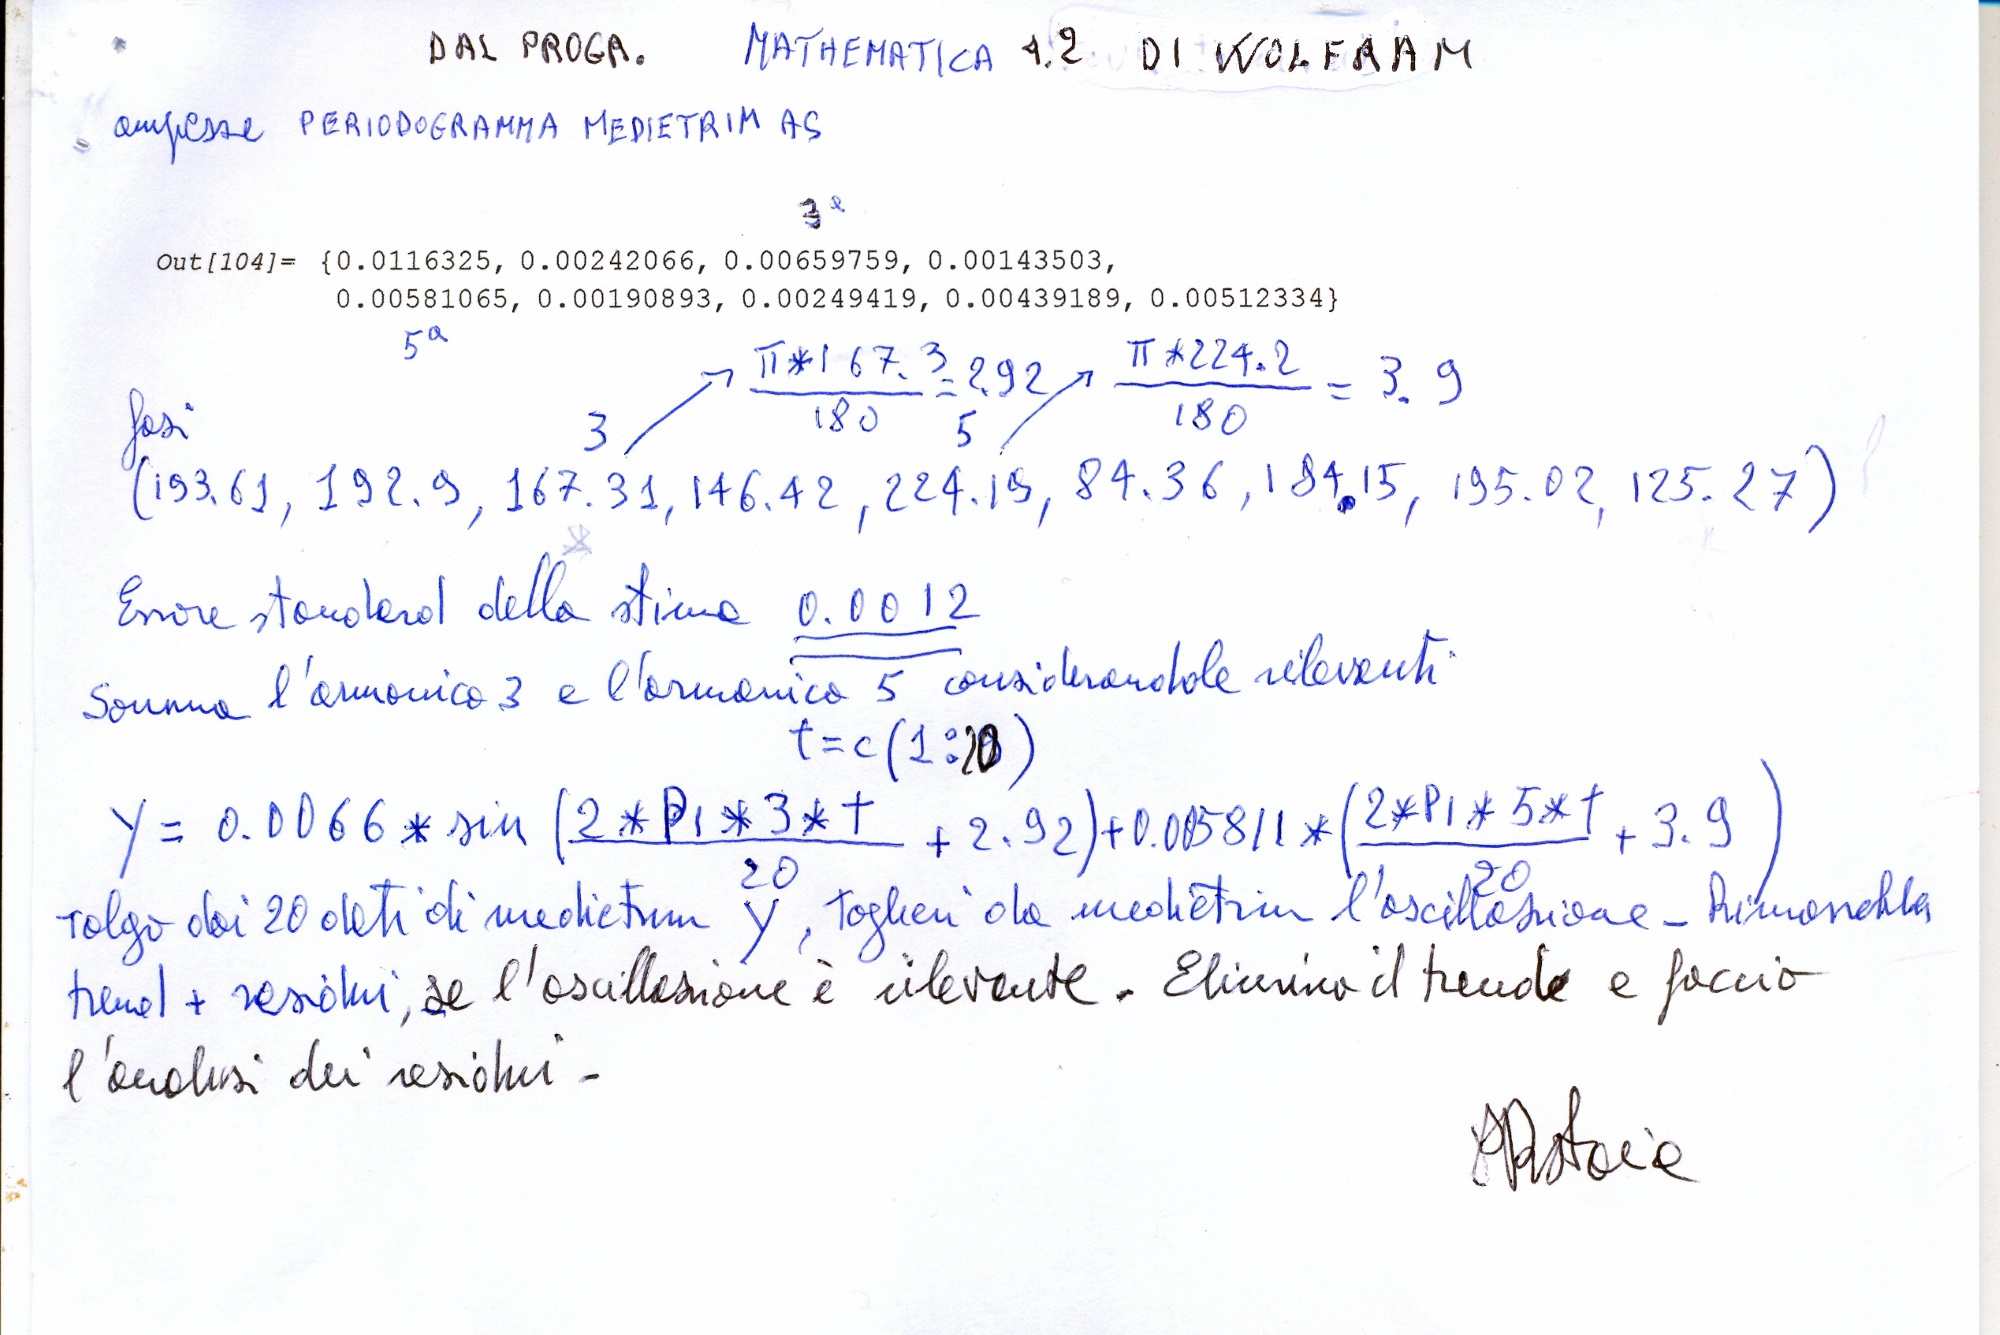 DAL PROGR. MATHEMATICA 4.2 DI WOLFRAM
ampiezze PERIODOGRAMMA MEDIETRIM AS
3ª
Out[104]= {0.0116325, 0.00242066, 0.00659759, 0.00143503,
0.00581065, 0.00190893, 0.00249419, 0.00439189, 0.00512334}
5ª
π*167.3/180 = 2.92 π*224.2/180 = 3.9
fasi
3 5
(193.61, 192.9, 167.31, 146.42, 224.19, 84.36, 184.15, 195.02, 125.27)
Errore standard della stima 0.0012
Somma l'armonica 3 e l'armonica 5 considerandole rilevanti
t=c(1:20)
Y= 0.0066 * sin (2*PI*3*t/20 + 2.92)+0.005811 *(2*PI*5*t/20 + 3.9)
Tolgo dai 20 dati di medietrim Y, togliere da medietrim l'oscillazione -
trend + residui, se l'oscillazione è rilevante. Elimino il trend e faccio
l'analisi dei residui -